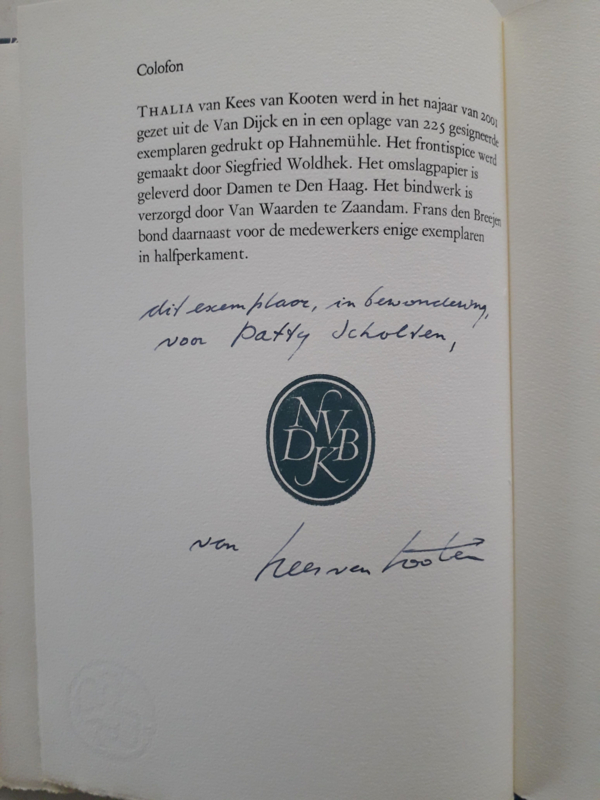 Colofon
THALIA van Kees van Kooten werd in het najaar van 2001
gezet uit de Van Dijck en in een oplage van 225 gesigneerde
exemplaren gedrukt op Hahnemühle. Het frontispice werd
gemaakt door Siegfried Woldhek. Het omslagpapier is
geleverd door Damen te Den Haag. Het bindwerk is
verzorgd door Van Waarden te Zaandam. Frans den Breejen
bond daarnaast voor de medewerkers enige exemplaren
in halfperkament.
dit exemplaar, in bewondering,
voor Patty Scholten,
NV
DKB
van Kees van Kooten